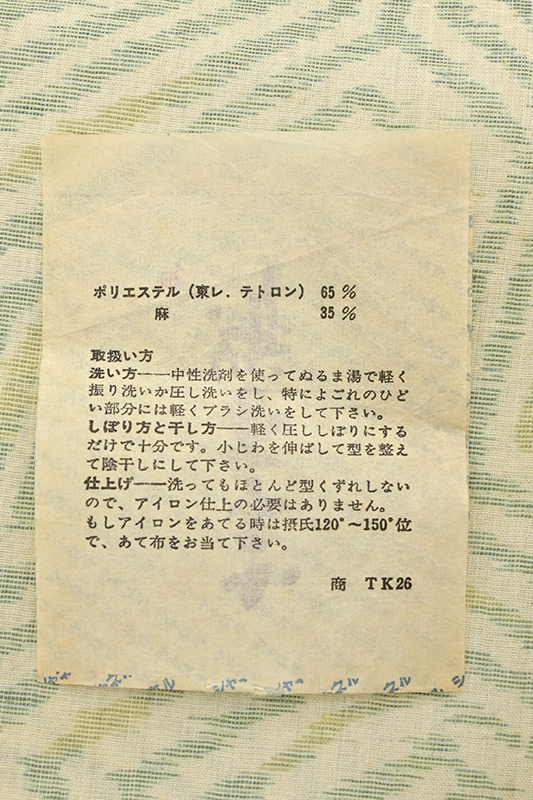 ポリエステル（東レ．テトロン） 65％
麻 35％
取扱い方
洗い方——中性洗剤を使ってぬるま湯で軽く
振り洗いか圧し洗いをし、特によごれのひど
い部分には軽くブラシ洗いをして下さい。
しぼり方と干し方——軽く圧ししぼりにする
だけで十分です。小じわを伸ばして型を整え
て陰干しにして下さい。
仕上げ——洗ってもほとんど型くずれしない
ので、アイロン仕上の必要はありません。
もしアイロンをあてる時は摂氏120°〜150°位
で、あて布をお当て下さい。
商 TK26